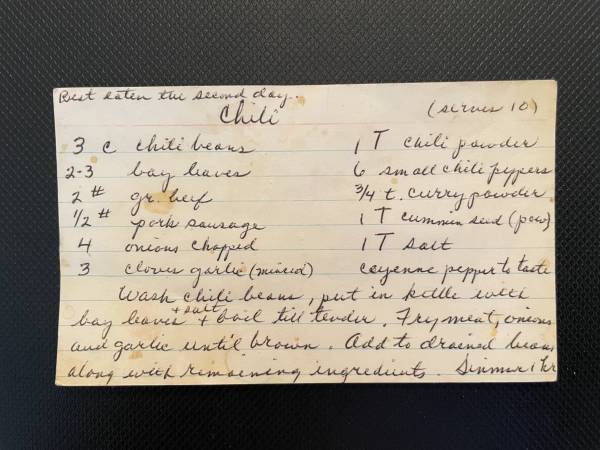 Best eaten the second day.
Chili (serves 10)
3 c chili beans 1 T chili powder
2-3 bay leaves 6 small chili peppers
2 # gr. beef 3/4 t. curry powder
1/2 # pork sausage 1 T cummin seed (pow)
4 onions chopped 1 T salt
3 cloves garlic (minced) cayenne pepper to taste
Wash chili beans, put in kettle with
+ salt
bay leaves + boil till tender. Fry meat, onions
and garlic until brown. Add to drained beans
along with remaining ingredients. Simmer 1 hr